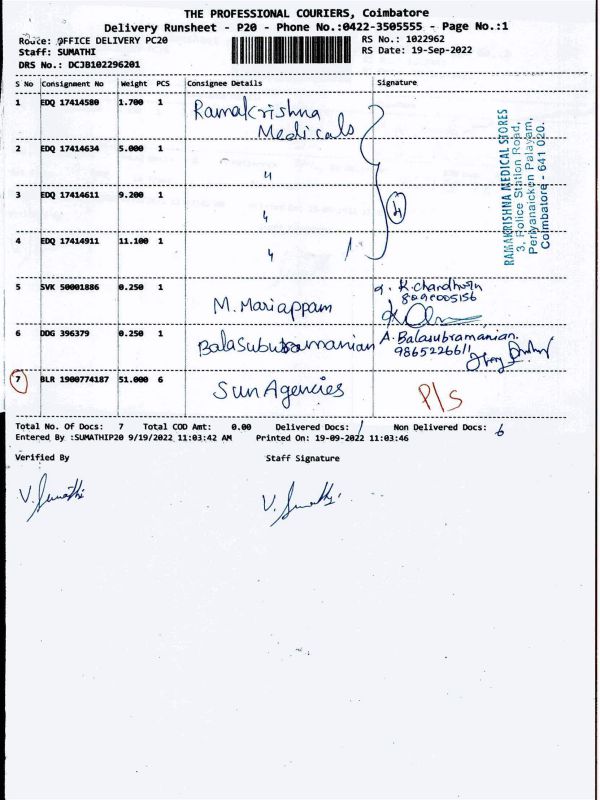 THE PROFESSIONAL COURIERS, Coimbatore
Delivery Runsheet - P20 - Phone No.:0422-3505555 - Page No.:1
Route: OFFICE DELIVERY PC20
RS No.: 1022962
Staff: SUMATHI
RS Date: 19-Sep-2022
DRS No.: DCJB102296201
S No Consignment No Weight PCS Consignee Details Signature
1 EDQ 17414580 1.700 1 Ramakrishna
Medicals
2 EDQ 17414634 5.000 1 "
3 EDQ 17414611 9.200 1 "
4 EDQ 17414911 11.100 1 "
RAMAKRISHNA MEDICAL STORES
3, Police Station Road,
Periyanaicken Palayam,
Coimbatore - 641 020.
5 SVK 50001886 0.250 1 M. Mariappam
6 DDG 396379 0.250 1 BalaSububramanian A. Balasubramanian.
9865226611
7 BLR 1900774187 51.000 6 Sun Agencies P/S
Total No. Of Docs: 7 Total COD Amt: 0.00 Delivered Docs: 1 Non Delivered Docs: 6
Entered By :SUMATHIP20 9/19/2022 11:03:42 AM Printed On: 19-09-2022 11:03:46
Verified By Staff Signature
V. Sumathi V. Sumathi